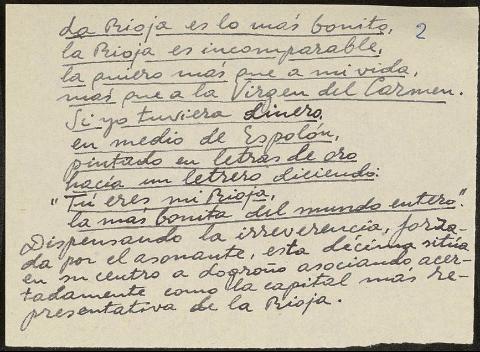 La Rioja es lo más bonito, 2
la Rioja es incomparable,
la quiero más que a mi vida,
más que a la Virgen del Carmen.
Si yo tuviera dinero,
en medio de Espolón,
pintado en letras de oro
hacía un letrero diciendo:
"Tú eres mi Rioja,
la más bonita del mundo entero".
Dispensando la irreverencia, forza-
da por el asonante, esta décima sitúa
en su centro a Logroño asociando acer-
tadamente como la capital más re-
presentativa de la Rioja.